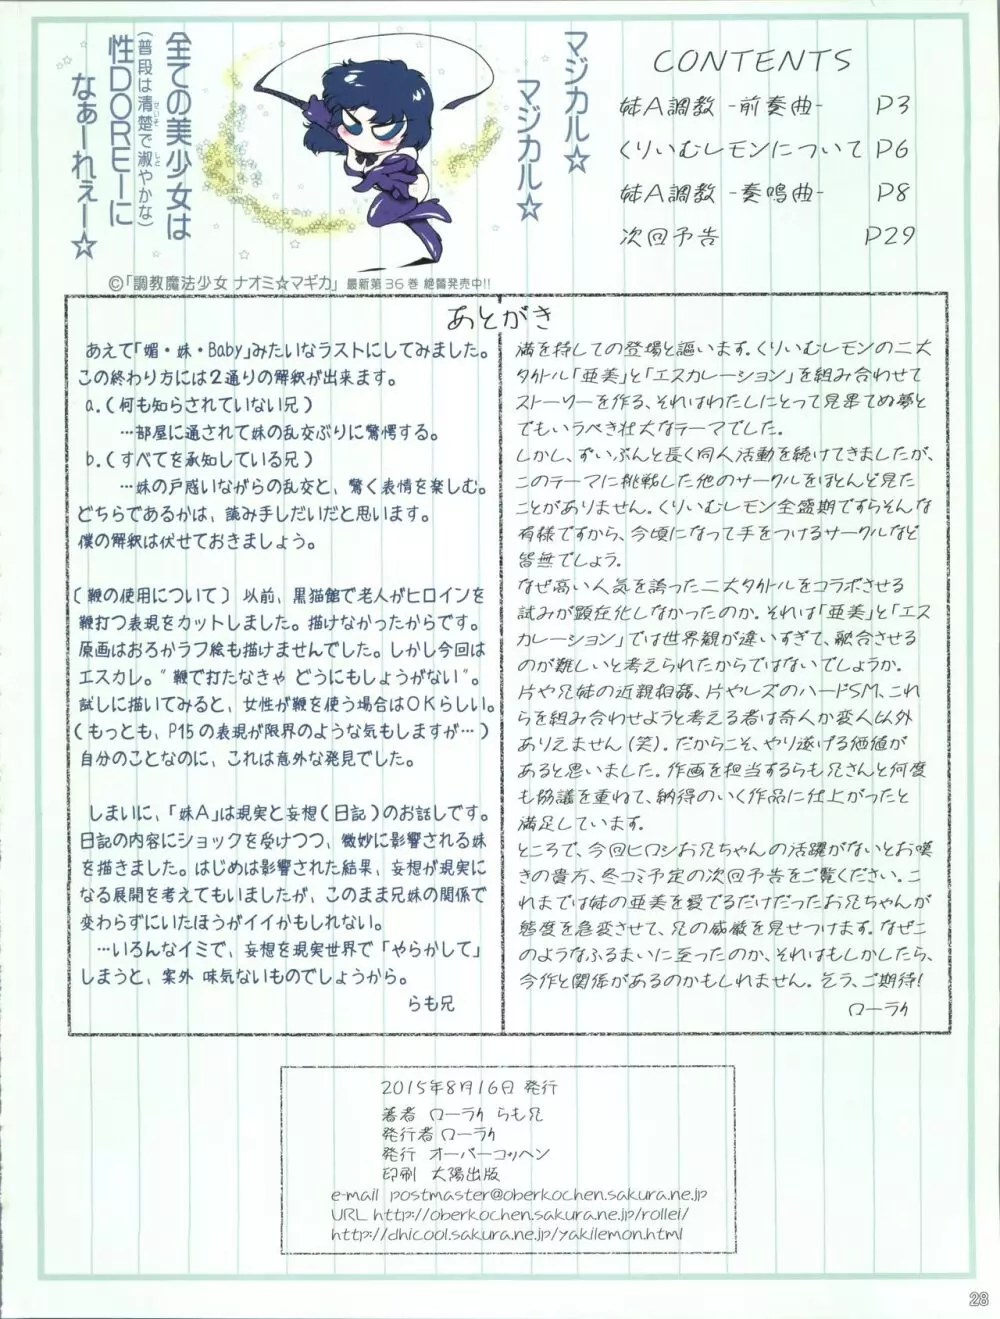 CONTENTS
妹A調教 -前奏曲- P3
くりいむレモンについて P6
妹A調教 -奏鳴曲- P8
次回予告 P29
マジカル☆
マジカル☆
全ての美少女は
(普段は清楚で淑やかな)
せいそ
しと
性DOREIーに
なぁーれぇー☆
©「調教魔法少女 ナオミ☆マギカ」 最新第36巻 絶賛発売中!!
あとがき
あえて「媚・妹・Baby」みたいなラストにしてみました。
この終わり方には2通りの解釈が出来ます。
a.(何も知らされていない兄)
…部屋に通されて妹の乱交ぶりに驚愕する。
b.(すべてを承知している兄)
…妹の戸惑いながらの乱交と、驚く表情を楽しむ。
どちらであるかは、読み手しだいだと思います。
僕の解釈は伏せておきましょう。
(鞭の使用について) 以前、黒猫館で老人がヒロインを
鞭打つ表現をカットしました。描けなかったからです。
原画はおろかラフ絵も描けませんでした。しかし今回は
エスカレ。“鞭で打たなきゃ どうにもしょうがない”。
試しに描いてみると、女性が鞭を使う場合はOKらしい。
(もっとも、P15の表現が限界のような気もしますが…)
自分のことなのに、これは意外な発見でした。
しまいに、「妹A」は現実と妄想(日記)のお話しです。
日記の内容にショックを受けつつ、微妙に影響される妹
を描きました。はじめは影響された結果、妄想が現実に
なる展開を考えてもいましたが、このまま兄妹の関係で
変わらずにいたほうがイイかもしれない。
…いろんなイミで、妄想を現実世界で「やらかして」
しまうと、案外 味気ないものでしょうから。
らも兄
満を持しての登場と謳います。くりいむレモンの二大
タイトル「亜美」と「エスカレーション」を組み合わせて
ストーリーを作る、それはわたしにとって見果てぬ夢と
でもいうべき壮大なテーマでした。
しかし、ずいぶんと長く同人活動を続けてきましたが、
このテーマに挑戦した他のサークルをほとんど見た
ことがありません。くりいむレモン全盛期ですらそんな
有様ですから、今頃になって手をつけるサークルなど
皆無でしょう。
なぜ高い人気を誇った二大タイトルをコラボさせる
試みが顕在化しなかったのか。それは「亜美」と「エス
カレーション」では世界観が違いすぎて、融合させる
のが難しいと考えられたからではないでしょうか。
片や兄妹の近親相姦、片やレズのハードSM、これ
らを組み合わせようと考える者は奇人か変人以外
ありえません(笑)。だからこそ、やり遂げる価値が
あると思いました。作画を担当するらも兄さんと何度
も協議を重ねて、納得のいく作品に仕上がったと
満足しています。
ところで、今回ヒロシお兄ちゃんの活躍がないとお嘆
きの貴方、冬コミ予定の次回予告をご覧ください。こ
れまでは妹の亜美を愛でるだけだったお兄ちゃんが
態度を急変させて、兄の威厳を見せつけます。なぜこ
のようなふるまいに至ったのか、それはもしかしたら、
今作と関係があるのかもしれません。そう、ご期待!
ローライ
2015年8月16日 発行
著者 ローライ らも兄
発行者 ローライ
発行 オーバーコッヘン
印刷 太陽出版
e-mail postmaster@oberkochen.sakura.ne.jp
URL http://oberkochen.sakura.ne.jp/rollei/
http://dhicool.sakura.ne.jp/yakilemon.html
28